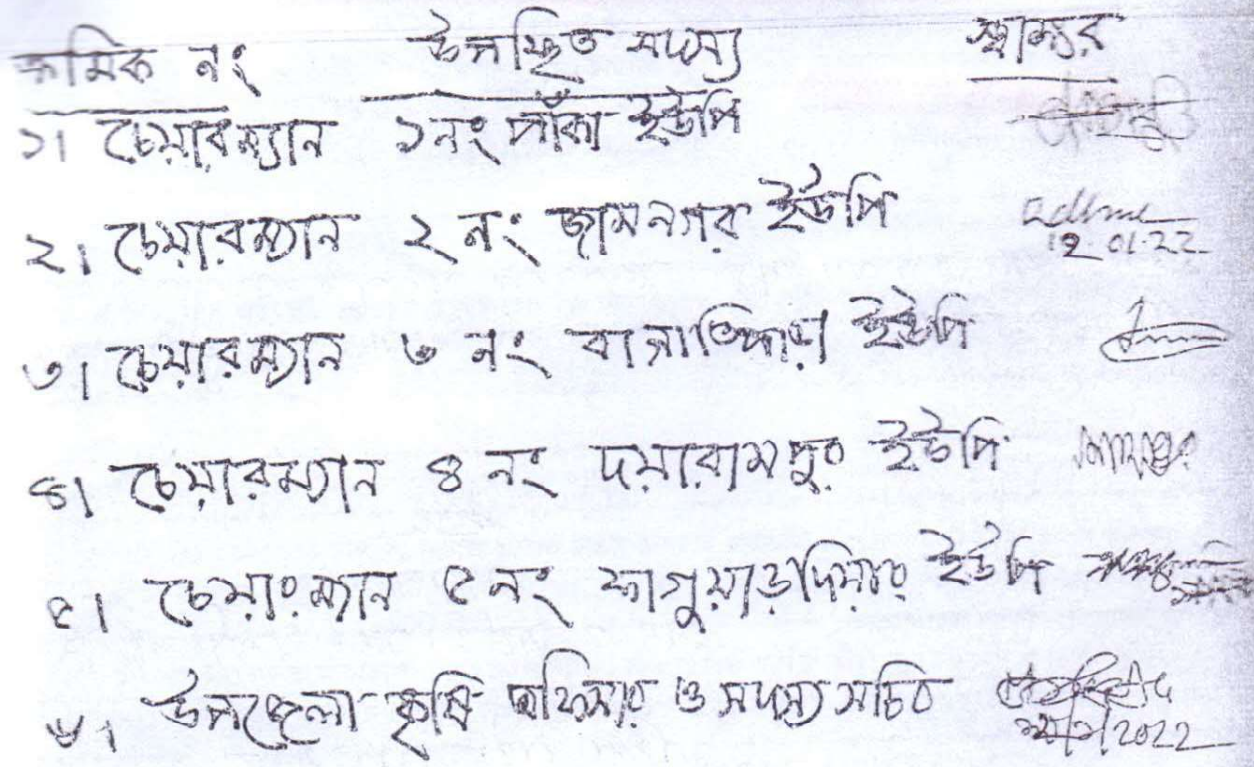 ক্রমিক নং উপস্থিত সদস্য স্বাক্ষর
১। চেয়ারম্যান ১নং পাঁকা ইউপি
২। চেয়ারম্যান ২ নং জামনগর ইউপি
12.01.22
৩। চেয়ারম্যান ৩ নং বাগাতিপাড়া ইউপি
৪। চেয়ারম্যান ৪ নং দয়ারামপুর ইউপি
৫। চেয়ারম্যান ৫নং ফাগুয়াড়দিয়ার ইউপি
৬। উপজেলা কৃষি অফিসার ও সদস্য সচিব